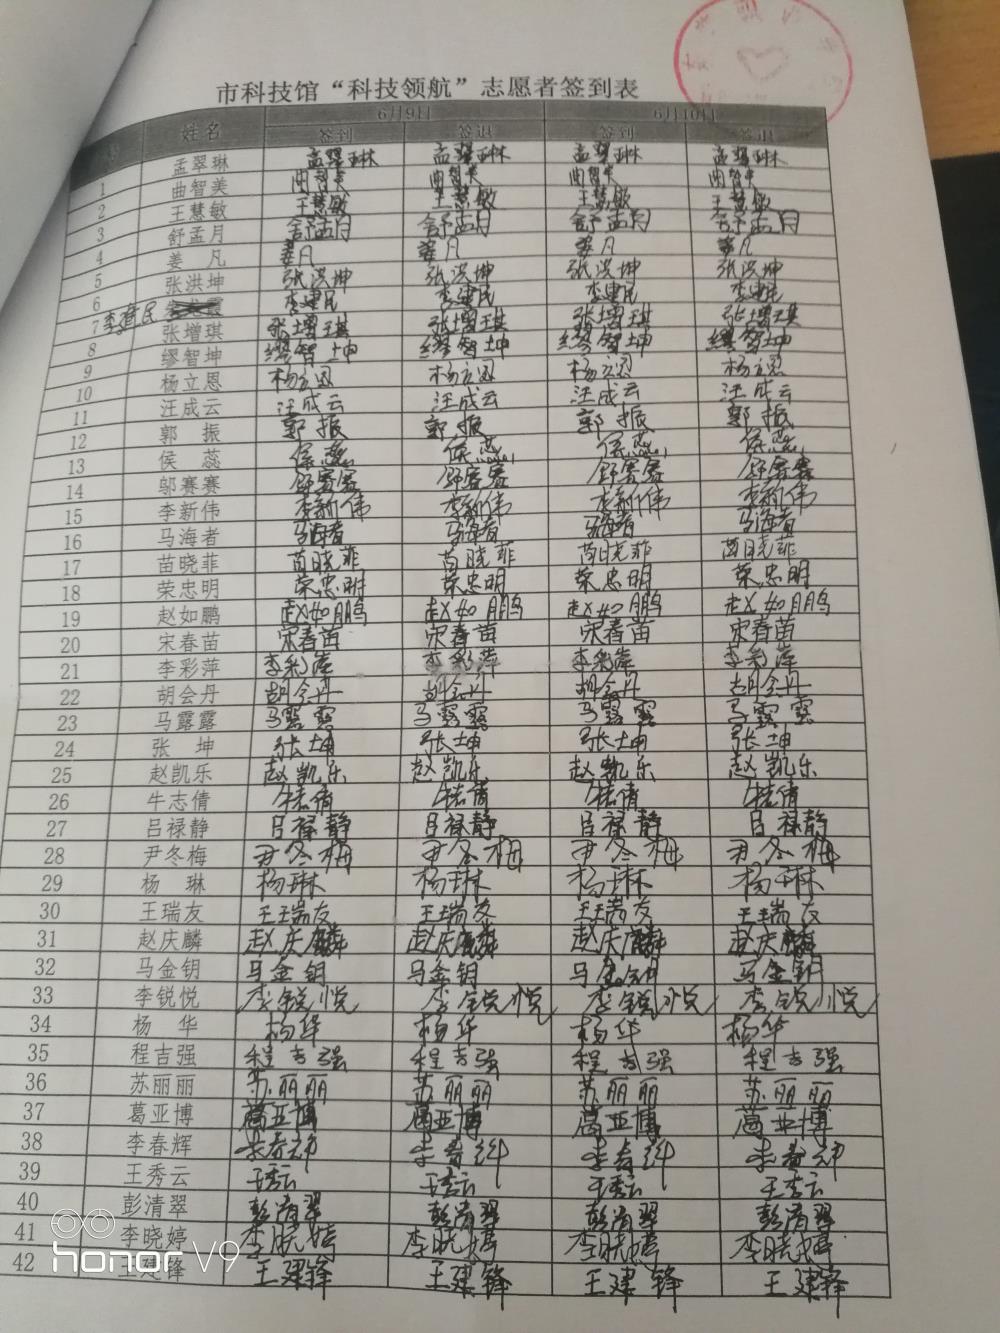 市科技馆“科技领航”志愿者签到表
6月9日 6月10日
姓名 签到 签退 签到 签退
1 孟翠琳 孟翠琳 孟翠琳 孟翠琳 孟翠琳
2 曲智美 曲智美 曲智美 曲智美 曲智美
3 王慧敏 王慧敏 王慧敏 王慧敏 王慧敏
4 舒孟月 舒孟月 舒孟月 舒孟月 舒孟月
5 姜凡 姜凡 姜凡 姜凡 姜凡
6 张洪坤 张洪坤 张洪坤 张洪坤 张洪坤
7 李建民 李建民 李建民 李建民
8 张增琪 张增琪 张增琪 张增琪 张增琪
9 缪智坤 缪智坤 缪智坤 缪智坤 缪智坤
10 杨立恩 杨立恩 杨立恩 杨立恩 杨立恩
11 汪成云 汪成云 汪成云 汪成云 汪成云
12 郭振 郭振 郭振 郭振 郭振
13 侯蕊 侯蕊 侯蕊 侯蕊 侯蕊
14 邬赛赛 邬赛赛 邬赛赛 邬赛赛 邬赛赛
15 李新伟 李新伟 李新伟 李新伟 李新伟
16 马海者 马海者 马海者 马海者 马海者
17 苗晓菲 苗晓菲 苗晓菲 苗晓菲 苗晓菲
18 荣忠明 荣忠明 荣忠明 荣忠明 荣忠明
19 赵如鹏 赵如鹏 赵如鹏 赵如鹏 赵如鹏
20 宋春苗 宋春苗 宋春苗 宋春苗 宋春苗
21 李彩萍 李彩萍 李彩萍 李彩萍 李彩萍
22 胡会丹 胡会丹 胡会丹 胡会丹 胡会丹
23 马露露 马露露 马露露 马露露 马露露
24 张坤 张坤 张坤 张坤 张坤
25 赵凯乐 赵凯乐 赵凯乐 赵凯乐 赵凯乐
26 牛志倩 牛志倩 牛志倩 牛志倩 牛志倩
27 吕禄静 吕禄静 吕禄静 吕禄静 吕禄静
28 尹冬梅 尹冬梅 尹冬梅 尹冬梅 尹冬梅
29 杨琳 杨琳 杨琳 杨琳 杨琳
30 王瑞友 王瑞友 王瑞友 王瑞友 王瑞友
31 赵庆麟 赵庆麟 赵庆麟 赵庆麟 赵庆麟
32 马金钥 马金钥 马金钥 马金钥 马金钥
33 李锐悦 李锐悦 李锐悦 李锐悦 李锐悦
34 杨华 杨华 杨华 杨华 杨华
35 程吉强 程吉强 程吉强 程吉强 程吉强
36 苏丽丽 苏丽丽 苏丽丽 苏丽丽 苏丽丽
37 葛亚博 葛亚博 葛亚博 葛亚博 葛亚博
38 李春辉 李春辉 李春辉 李春辉 李春辉
39 王秀云 王秀云 王秀云 王秀云 王秀云
40 彭清翠 彭清翠 彭清翠 彭清翠 彭清翠
41 李晓婷 李晓婷 李晓婷 李晓婷 李晓婷
42 王建锋 王建锋 王建锋 王建锋 王建锋
honor V9